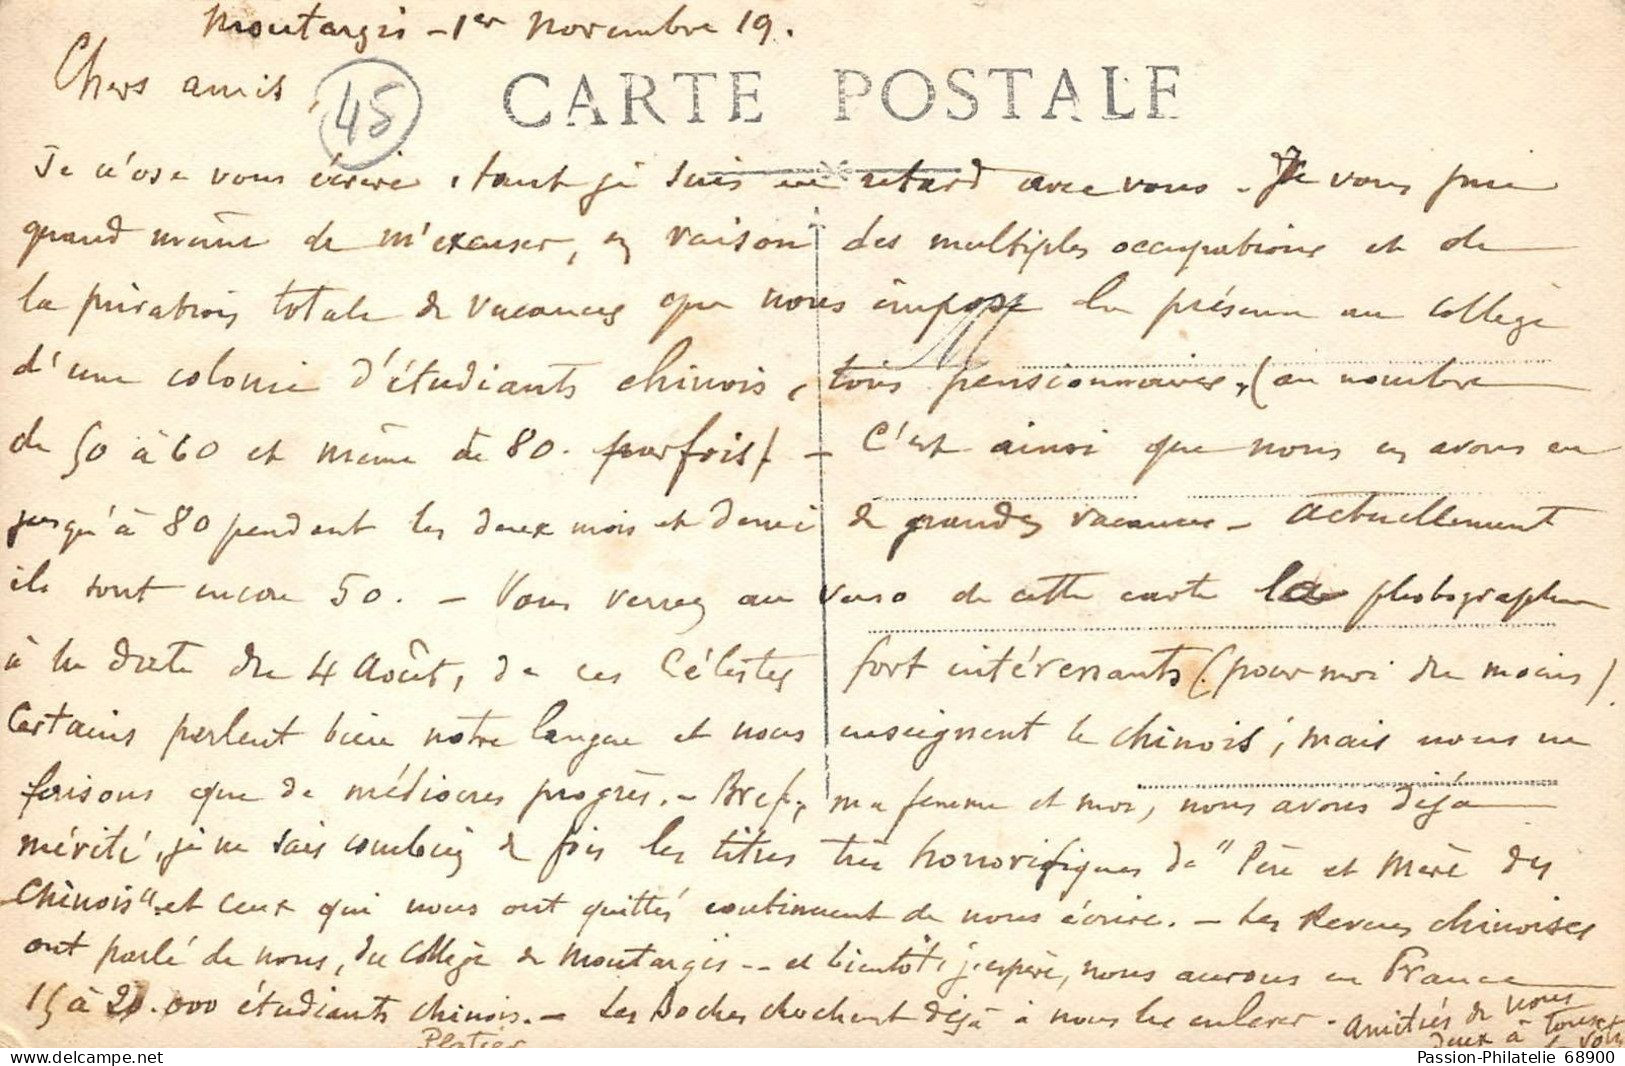 Montargis - 1er Novembre 19.
Chers amis,
45
CARTE POSTALE
Je n'ose vous écrire, tant je suis en retard avec vous - Je vous prie
quand même de m'excuser, en raison des multiples occupations et de
la privation totale de vacances que nous impose la présence au collège
d'une colonie d'étudiants chinois, tous pensionnaires, (au nombre
de 50 à 60 et même de 80 parfois) - C'est ainsi que nous en avons eu
jusqu'à 80 pendant les deux mois et demi de grandes vacances - Actuellement
ils sont encore 50. - Vous verrez au verso de cette carte la photographie
à la date du 4 Août, de ces Célestes fort intéressants (pour moi du moins)
Certains parlent bien notre langue et nous enseignent le chinois; mais nous ne
faisons que de médiocres progrès. - Bref, ma femme et moi, nous avons déjà
mérité, je ne sais combien de fois les titres très honorifiques de "Père et Mère des
Chinois" et ceux qui nous ont quittés continuent de nous écrire. - Les Revues chinoises
ont parlé de nous, du Collège de Montargis -- et bientôt, j'espère, nous aurons en France
15 à 20.000 étudiants chinois. - Les Boches cherchent déjà à nous les enlever - Amitiés de nous
deux à tous
Passion-Philatelie 68900